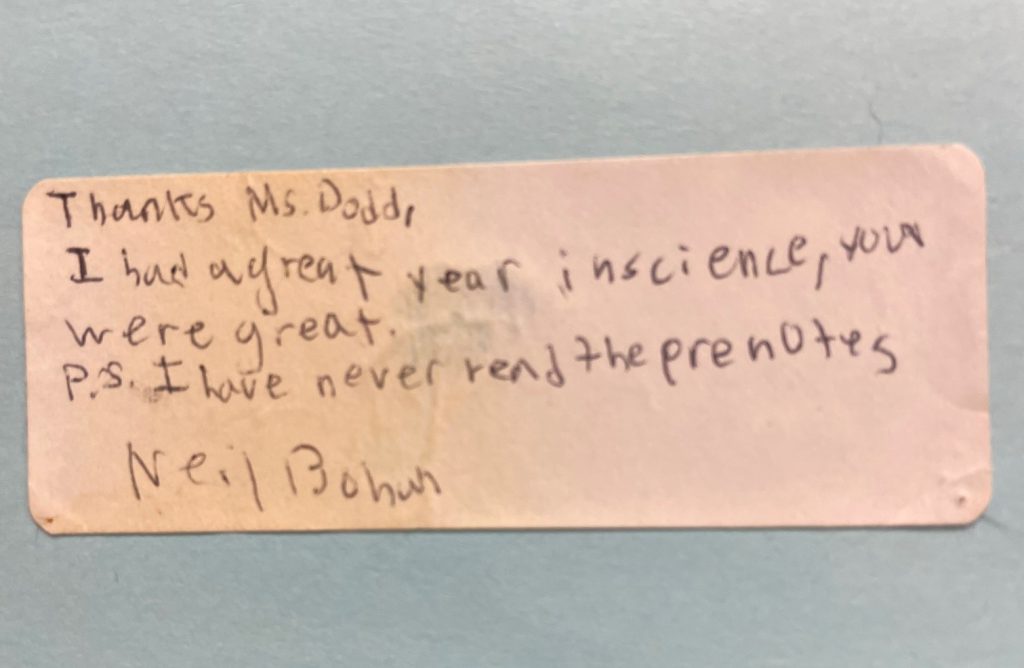 Thanks Ms. Dodd,
I had a great year in science, your
were great.
P.S. I have never read the prenotes
Neil Bohun